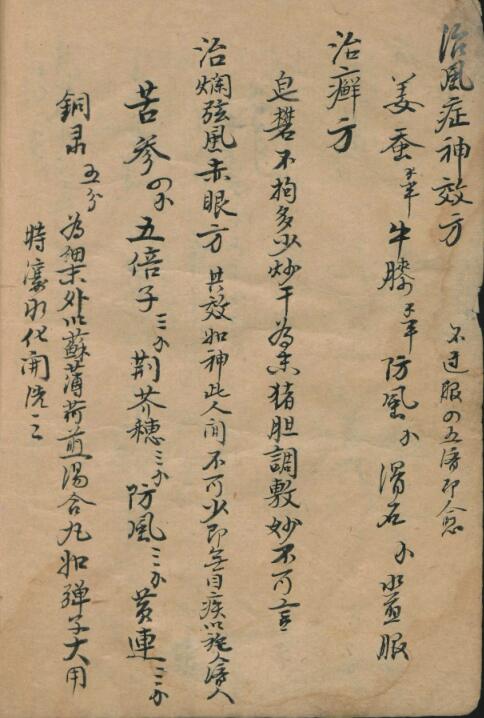 治風症神效方 不过服四五濟即愈
姜蚕 牛膝 防風 滑石 水煎服
治癬方
皂礬不拘多少炒干為末猪胆調敷妙不可言
治爛弦風赤眼方 其效如神此人间不可少即無目疾以施人濟人
苦參 五倍子 荆芥穗 防風 黄連
銅录 五分 為細末外以蘇薄荷煎湯合丸如弹子大用
時 水化開洗之